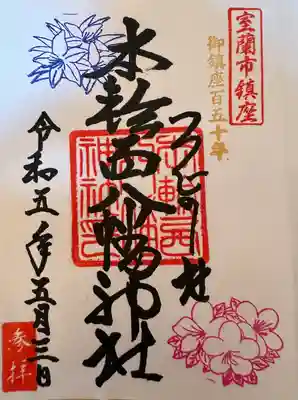 室蘭市鎮座
御鎮座百五十年
本輪西八幡神社
令和五年五月三日
参拝